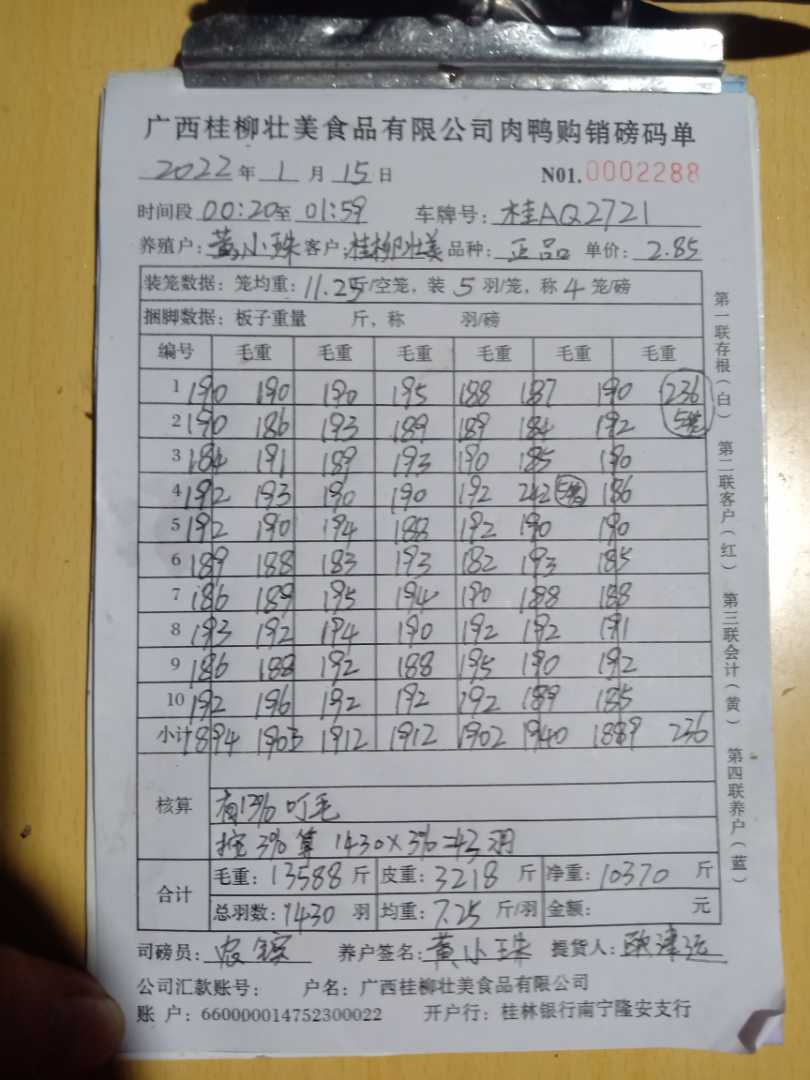 广西桂柳壮美食品有限公司肉鸭购销磅码单
2022年1月15日 N01.0002288
时间段00:20至01:59 车牌号:桂AQ2721
养殖户:黄小珠 客户:桂柳壮美 品种:正品 单价:2.85
装笼数据:笼均重:11.25斤/空笼,装5羽/笼,称4笼/磅
捆脚数据:板子重量 斤,称 羽/磅
编号 毛重 毛重 毛重 毛重 毛重 毛重
1 190 190 190 195 188 187 190 236
2 190 186 193 189 189 184 192 5笼
3 184 191 189 193 190 185 190
4 192 193 190 190 192 242 5笼 186
5 192 190 194 188 192 190 190
6 189 188 183 193 182 193 185
7 186 189 195 194 190 188 188
8 193 192 194 190 192 192 191
9 186 188 192 188 195 190 192
10 192 196 192 192 192 189 185
小计 1894 1903 1912 1912 1902 1940 1889 236
核算
有13% 叮毛
按3%算 1430×3%=43羽
合计
毛重:13588斤 皮重:3218斤 净重:10370斤
总羽数:1430羽 均重:7.25斤/羽 金额: 元
司磅员: 养户签名:黄小珠 提货人:
公司汇款账号: 户名:广西桂柳壮美食品有限公司
账 户:660000014752300022 开户行:桂林银行南宁隆安支行
第一联存根(白)
第二联客户(红)
第三联会计(黄)
第四联养户(蓝)